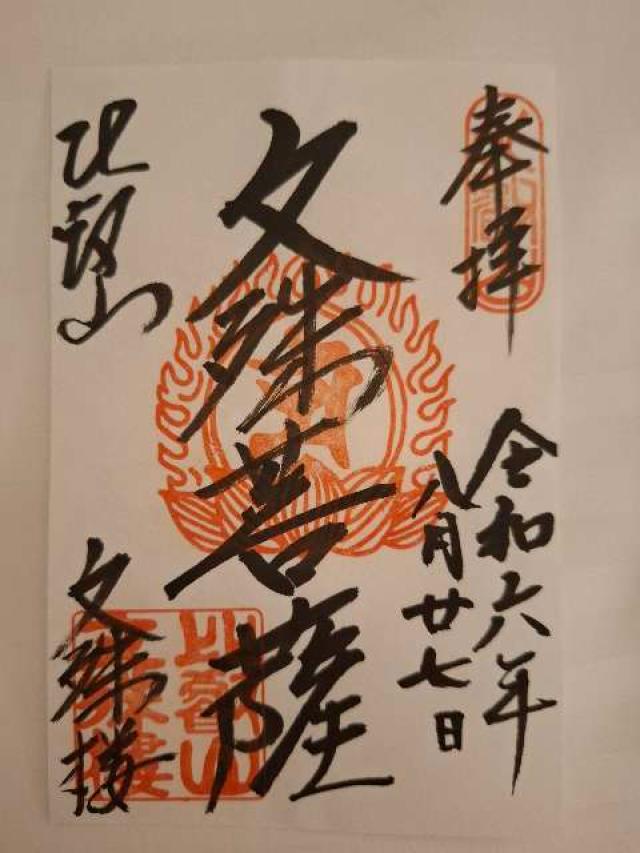 奉拝
令和六年
八月廿七日
文殊菩薩
比叡山
文殊楼
比叡山
文殊樓